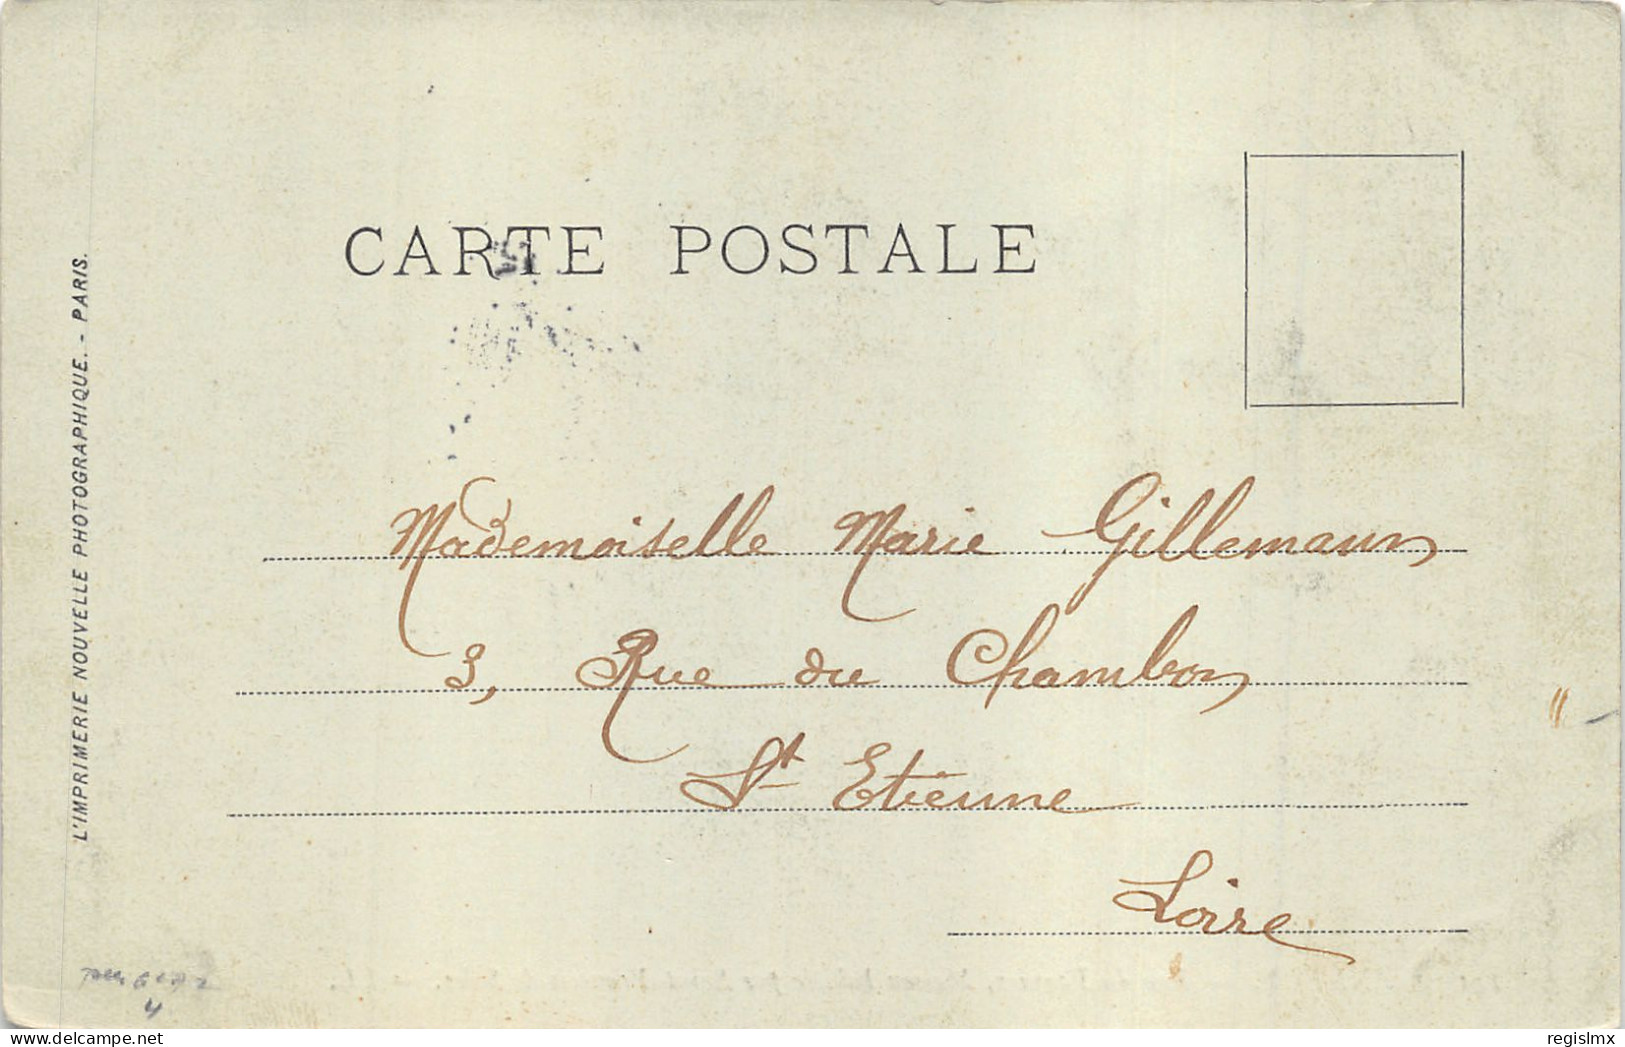 CARTE POSTALE
L'IMPRIMERIE NOUVELLE PHOTOGRAPHIQUE. - PARIS.
Mademoiselle Marie Gillemann
3, Rue du Chambon
St Etienne
Loire
4
delcampe.net
regislmx